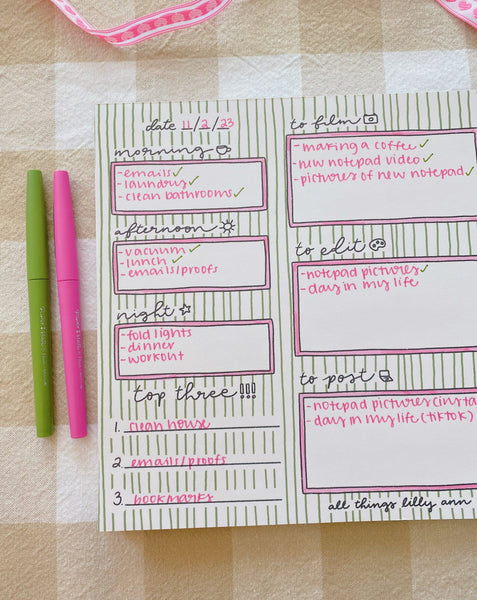 date 11/2/23
morning
- emails ✓
- laundry ✓
- clean bathrooms ✓
afternoon
- vacuum ✓
- lunch ✓
- emails/proofs
night
- fold lights
- dinner
- workout
top three !!!
1. clean house
2. emails/proofs
3. bookmarks
to film
- making a coffee ✓
- new notepad video ✓
- pictures of new notepad ✓
to edit
- notepad pictures ✓
- day in my life
to post
- notepad pictures (insta
- day in my life (tiktok)
all things lilly ann